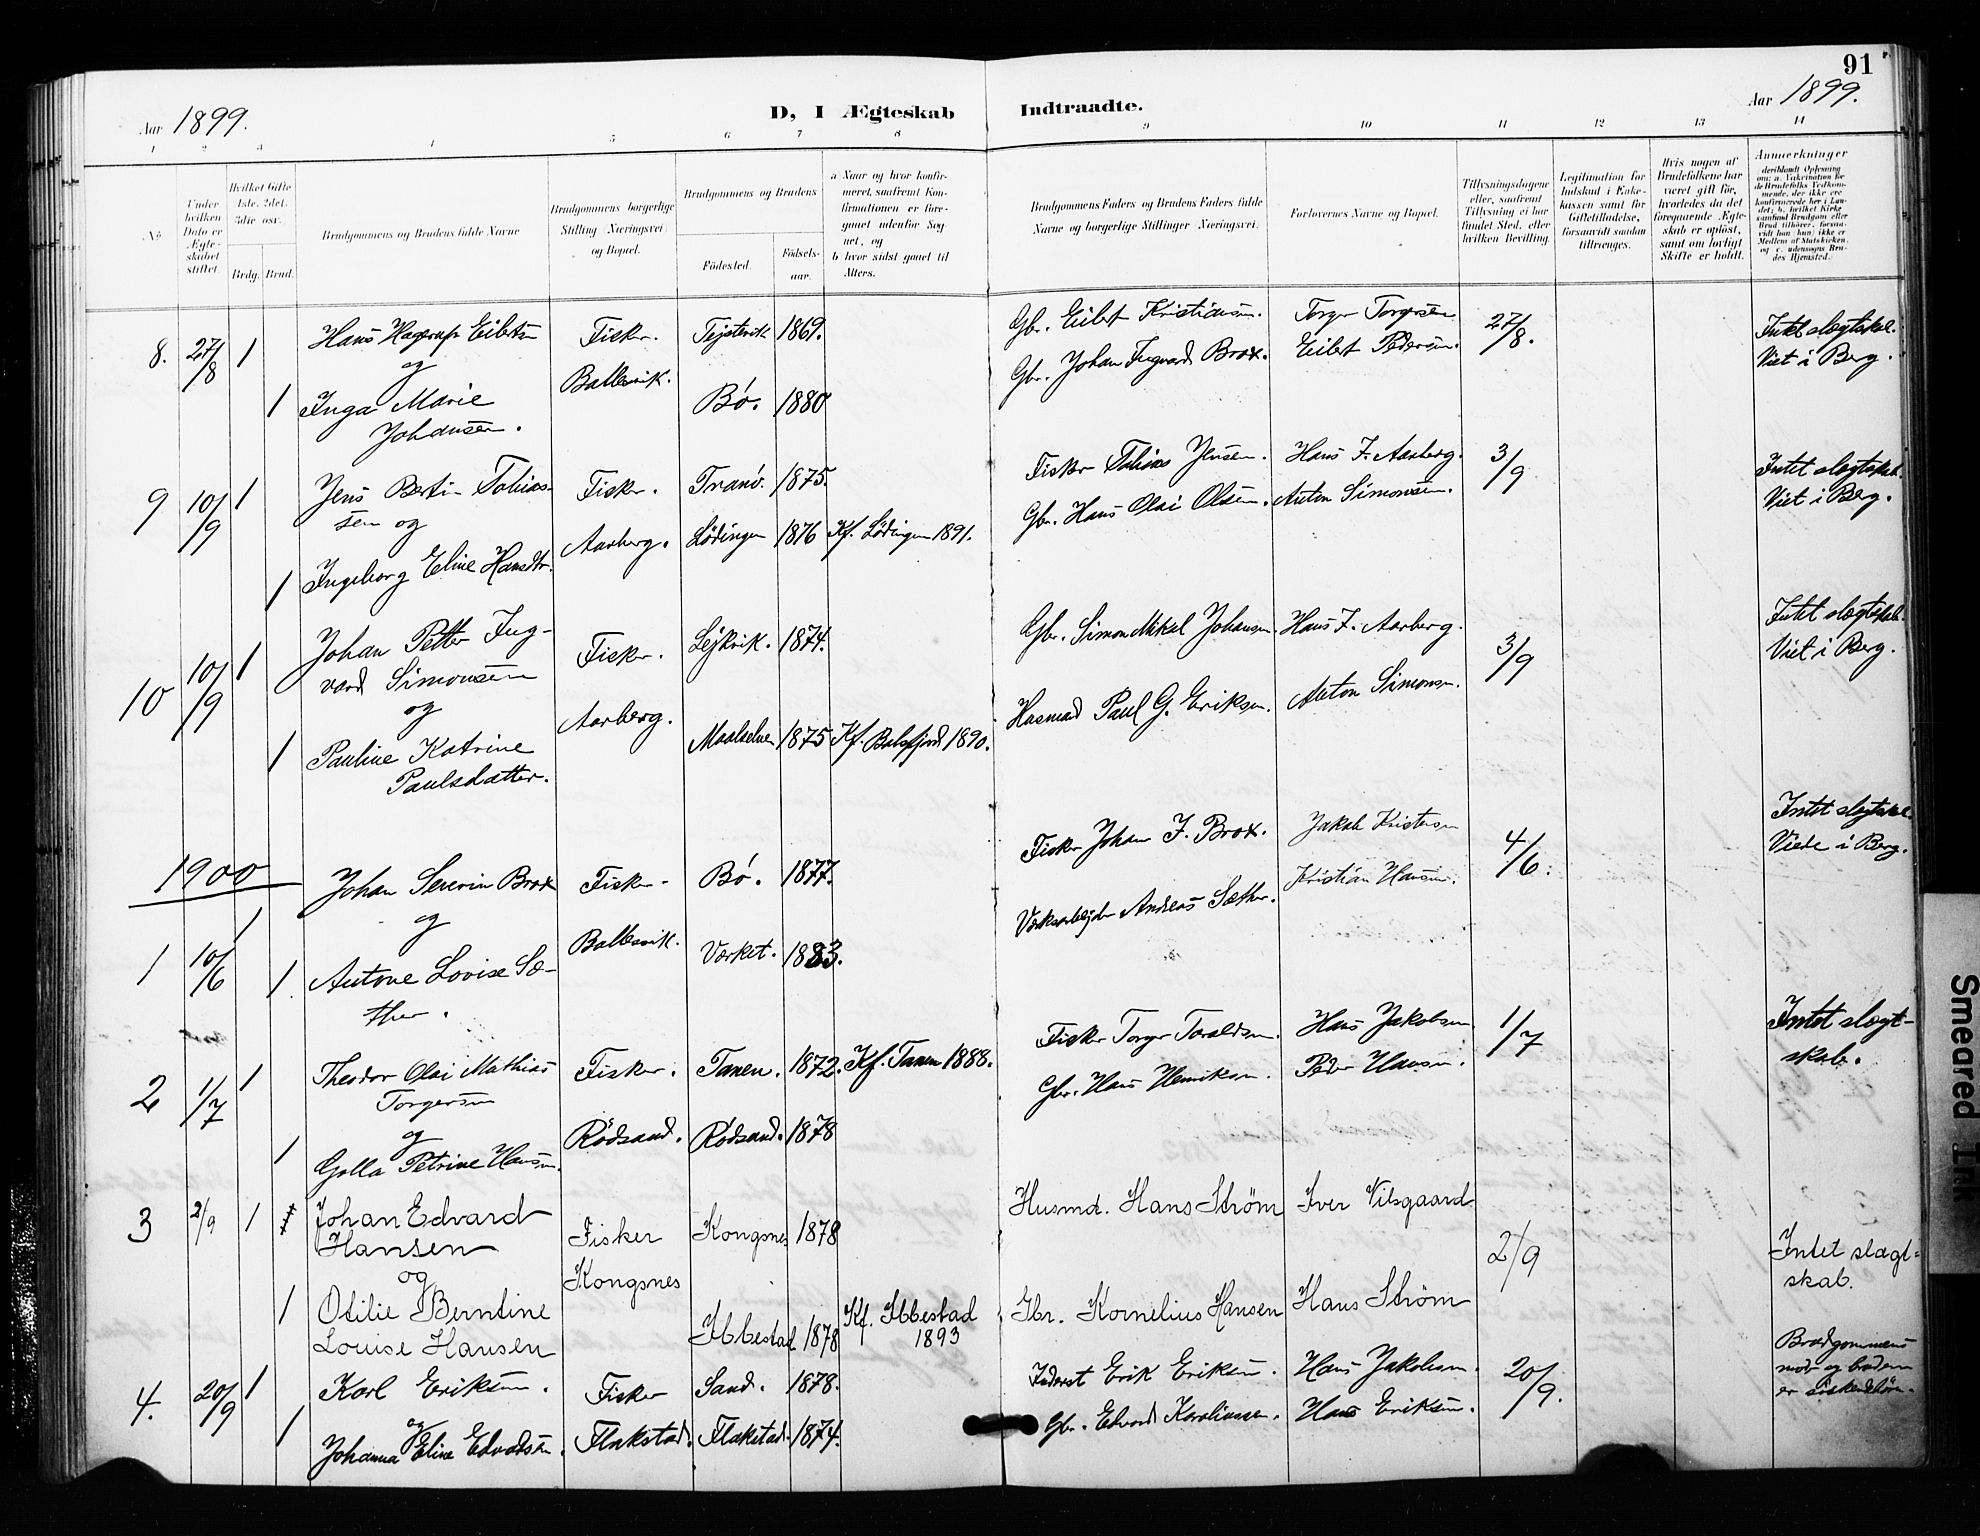 91
Aar 1899.
D, I Ægteskab
Indtraadte.
Aar 1899.
1 2 3 4 5 6 7 8 9 10 11 12 13 14
No
Under hvilken Dato er Ægteskabet stiftet.
Hvilket Gifte 1ste, 2det, 3die osv.
Brdg. Brud.
Brudgommens og Brudens fulde Navne
Brudgommens borgerlige Stilling (Næringsvei) og Bopæl.
Brudgommens og Brudens
Födested.
Födsels-aar.
a Naar og hvor konfirmeret, saafremt Konfirmationen er foregaaet udenfor Sognet, og
b hvor sidst gaaet til Alters.
Brudgommens Faders og Brudens Faders fulde Navne og borgerlige Stillinger (Næringsvei).
Forlovernes Navne og Bopæl.
Tillysningsdagene eller, saafremt Tillysning ei har fundet Sted, efter hvilken Bevilling.
Legitimation for Indskud i Enkekassen samt for Giftetilladelse, forsaavidt saadan tiltrænges.
Hvis nogen af Brudefolkene har været gift för, hvorledes da det foregaaende Ægteskab er oplöst, samt om lovligt Skifte er holdt.
Anmerkninger
8. 27/8 1 Hans Hagerup Eibertsen Fisker. Tejstevik 1869. Gbr. Eilert Kristiansen. Torger Torgersen 27/8. Intet slegtskab.
og Ballesvik. Gbr. Johan Ingvard Brox. Eilert Pedersen. Viet i Berg.
1 Inga Marie Bö. 1880
Johansen.
9 10/9 1 Jens Bertin Tobias- Fisker. Tranö. 1875. Fisker Tobias Jensen. Hans F. Aarberg. 3/9 Intet slegtskab.
sen og Aarberg. Lödingen 1876 Kf. Lödingen 1891. Gbr. Hans Olai Olsen. Anton Simonsen. Viet i Berg.
1 Ingeborg Eline Hansdtr.
10 10/9 1 Johan Petter Ing- Fisker. Lejkvik. 1874. Gbr. Simon Mikal Johansen. Hans F. Aarberg. 3/9 Intet slegtskab.
vard Simonsen Viet i Berg.
og Aarberg. Husmand Paul G. Eriksen. Anton Simonsen.
1 Pauline Katrine Maalselven 1875 Kf. Balsfjord 1890.
Paulsdatter.
1900
1 10/6 1 Johan Severin Brox Fisker. Bö. 1877. Fisker Johan I. Brox. Jakob Kristensen 4/6. Intet slegtskab.
og Ballesvik. Værksarbejder Andreas Sæther. Kristian Hansen. Viede i Berg.
1. Antone Lovise Sæ- Værket. 1883.
ther.
2 1/7 1 Theodor Olai Mathias Fisker. Tanen. 1872. Kf. Tanen 1888. Fisker Torger Toraldsen. Hans Jakobsen 1/7 Intet slegt-
Torgersen Gbr. Hans Henriksen. Peder Hansen. skab.
og Rödsand. Rödsand. 1878
1 Golla Petrine Hansen.
3 2/9 1 Johan Edvard Fisker Kongsnes 1878 Husmd. Hans Strøm Iver Vilsgaard 2/9 Intet slægt-
Hansen skab.
og Kongsnes
1 Otilie Berntine Ibbestad 1878 Kf. Ibbestad 1893 Gbr. Kornelius Hansen Hans Strøm
Louise Hansen
4. 20/9 1 Karl Eriksen. Fisker Sand. 1878. Inderst Erik Eriksen. Hans Jakobsen. 20/9. Brudgommens
og mor og bruden
1 Johanna Eline Edvardsen. Flakstad. Flakstad. 1874. Gbr. Edvard Karoliussen. Hans Eriksen. er søskendebörn.
Smeared Ink